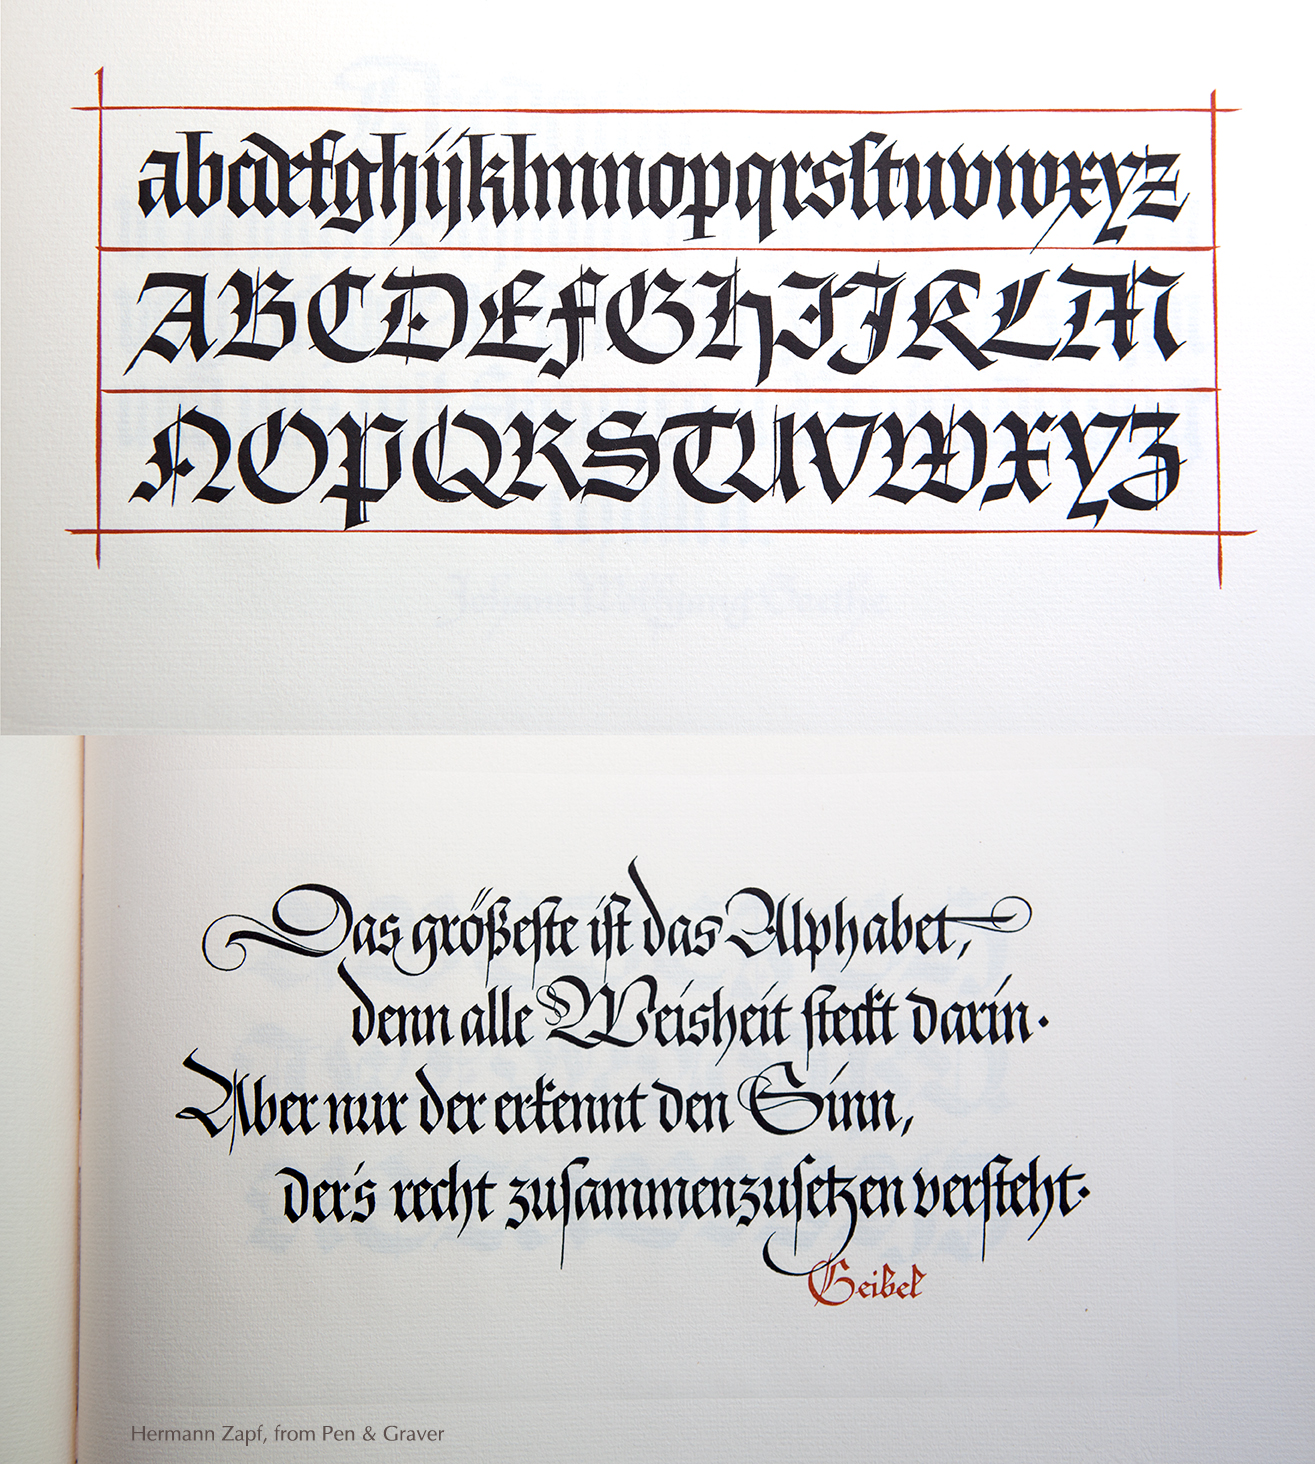 abcdefghijklmnopqrsſtuvwxyz
ABCDEFGHIJKLM
NOPQRSTUVWXYZ
Das größeſte iſt das Alphabet,
denn alle Weisheit ſteckt darin·
Aber nur der erkennt den Sinn,
der's recht zuſammenzuſetzen verſteht·
Geibel
Hermann Zapf, from Pen & Graver